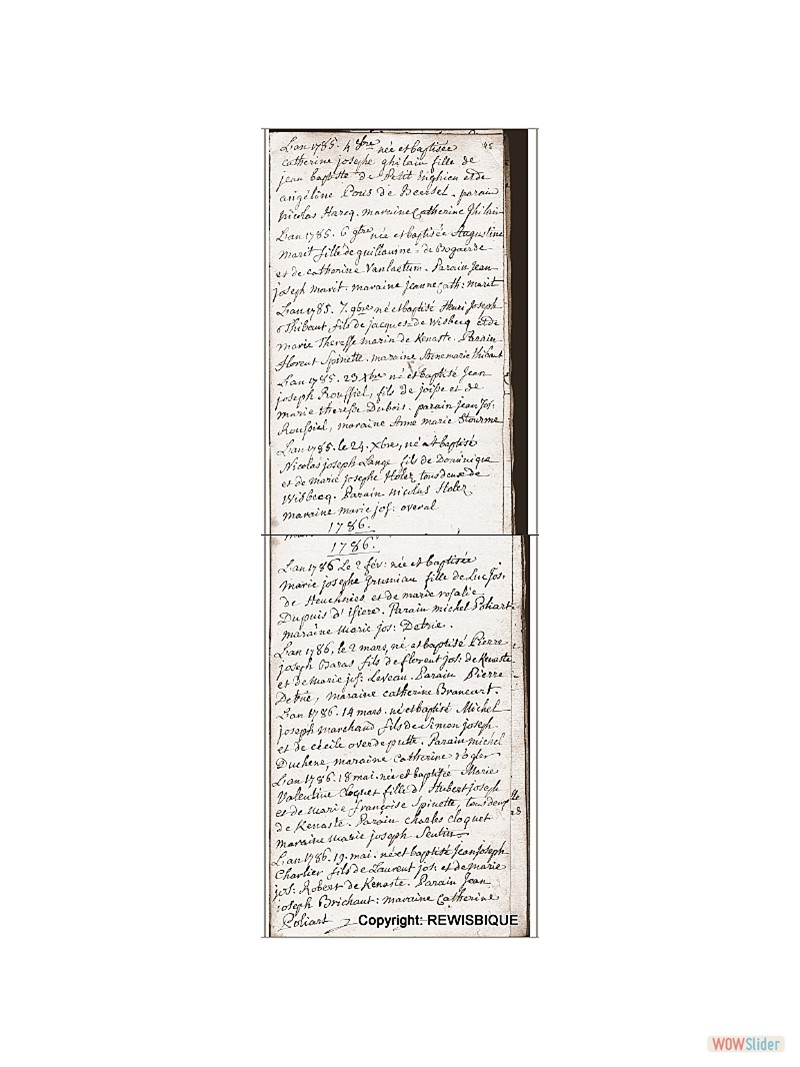 L'an 1785. 4 9bre née et baptisée 45
catherine josephe ghilain fille de
jean baptiste de Petit Enghien et de
angeline Pous de Beersel. parain
nicolas Harcq. maraine Catherine Ghilain
L'an 1785. 6 9bre née et baptisée Augustine
marit fille de guillaume de Bogaerde
et de catherine Vanlaetum. Parain Jean
joseph marit. maraine jeanne cath: marit
L'an 1785. 7. 9bre né et baptisé Henri Joseph
Thibaut fils de jacques de Wisbecq et de
marie Theresse marin de Kenaste. Parain
florent Spinette. maraine Annemarie Thibaut
L'an 1785. 23 Xbre né et baptisé Jean
joseph Rouffiel, fils de et de
marie therese Dubois. parain Jean Jos:
Rouffiel, maraine Anne marie Stourme
L'an 1785. le 24. Xbre, né et baptisé
Nicolas joseph Lange fils de Dominique
et de marie josephe Holez tous deux de
Wisbecq. Parain nicolas Holez
maraine marie jos: overal
1786.
1786.
L'an 1786 Le 2 fév: née et baptisée
marie josephe Grumiau fille de Luc Jos.
de Steuchnies et de marie rosalie
Dupuis d'ifiere. Parain michel Poliart.
maraine Marie jos: Detrie.
L'an 1786. le 2 mars, né et baptisé Pierre
joseph Baras fils de florent jos: de Kenaste
et de Marie jos: Leveau. Parain Pierre
Detrie, maraine catherine Brancart.
L'an 1786. 14 mars. né et baptisé Michel
joseph marchand fils de Simon joseph
et de cécile overdeputte. Parain michel
Duchene, maraine catherine
L'an 1786. 18 mai. née et baptisée Marie
Valentine Cloquet fille d'Hubert joseph
et de Marie françoise Spinette, tous deux
de Kenaste. Parain charles cloquet
maraine Marie joseph Seutin
L'an 1786. 19. mai. né et baptisé Jean Joseph
Charlier fils de Laurent jos: et de Marie
jos: Robert de Kenaste. Parain Jean
joseph Brichaut: maraine Catherine
Poliart
Copyright: REWISBIQUE
WOWSlider